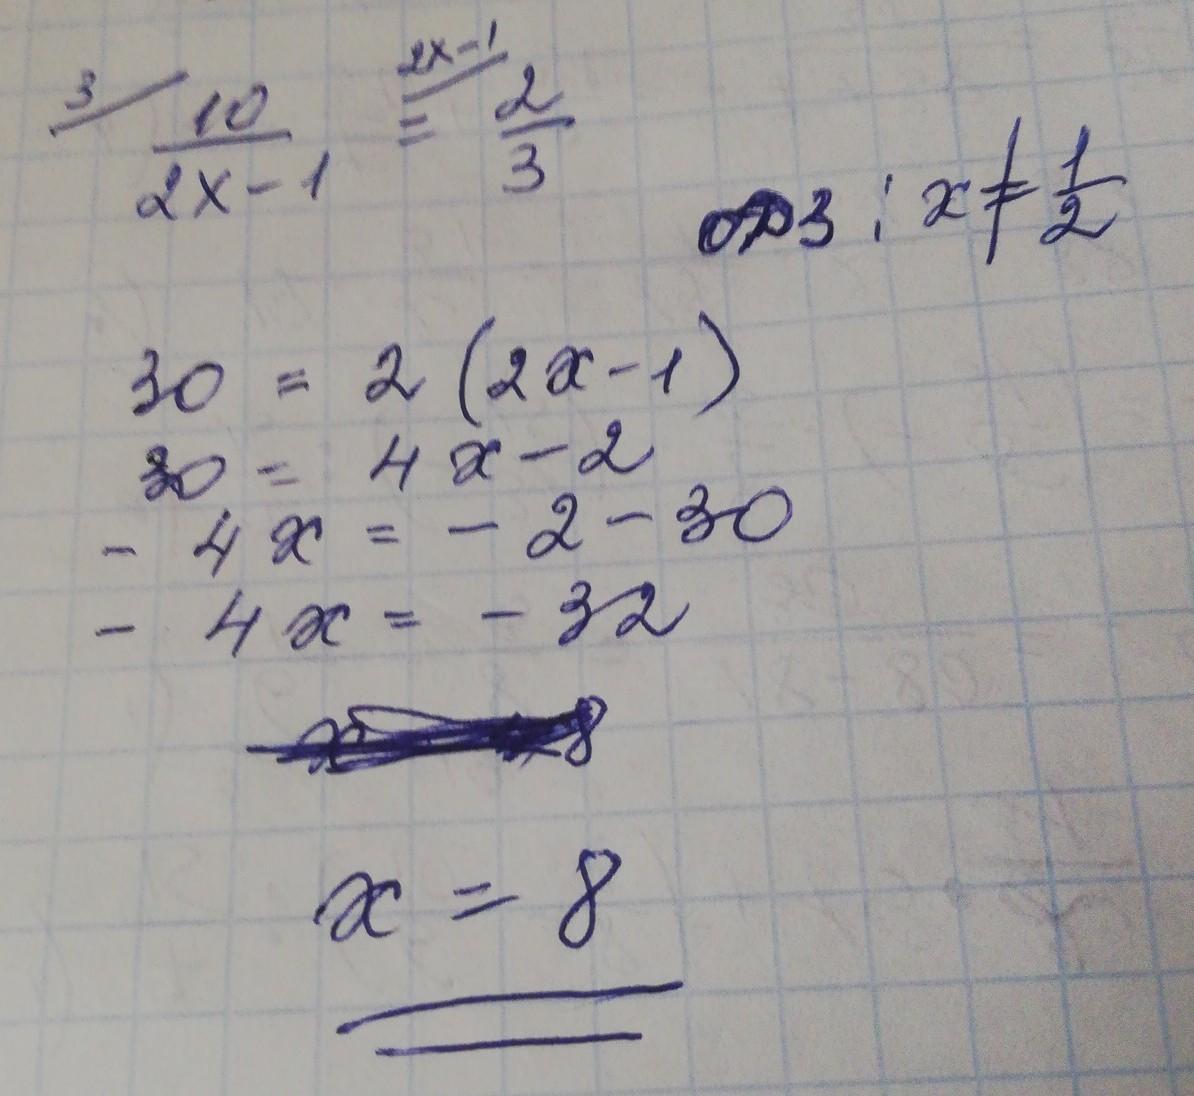 3/ 10/(2x-1) = 2x-1/ 2/3
ОДЗ: x≠1/2
30 = 2(2x-1)
30 = 4x-2
-4x = -2-30
-4x = -32
x = 8